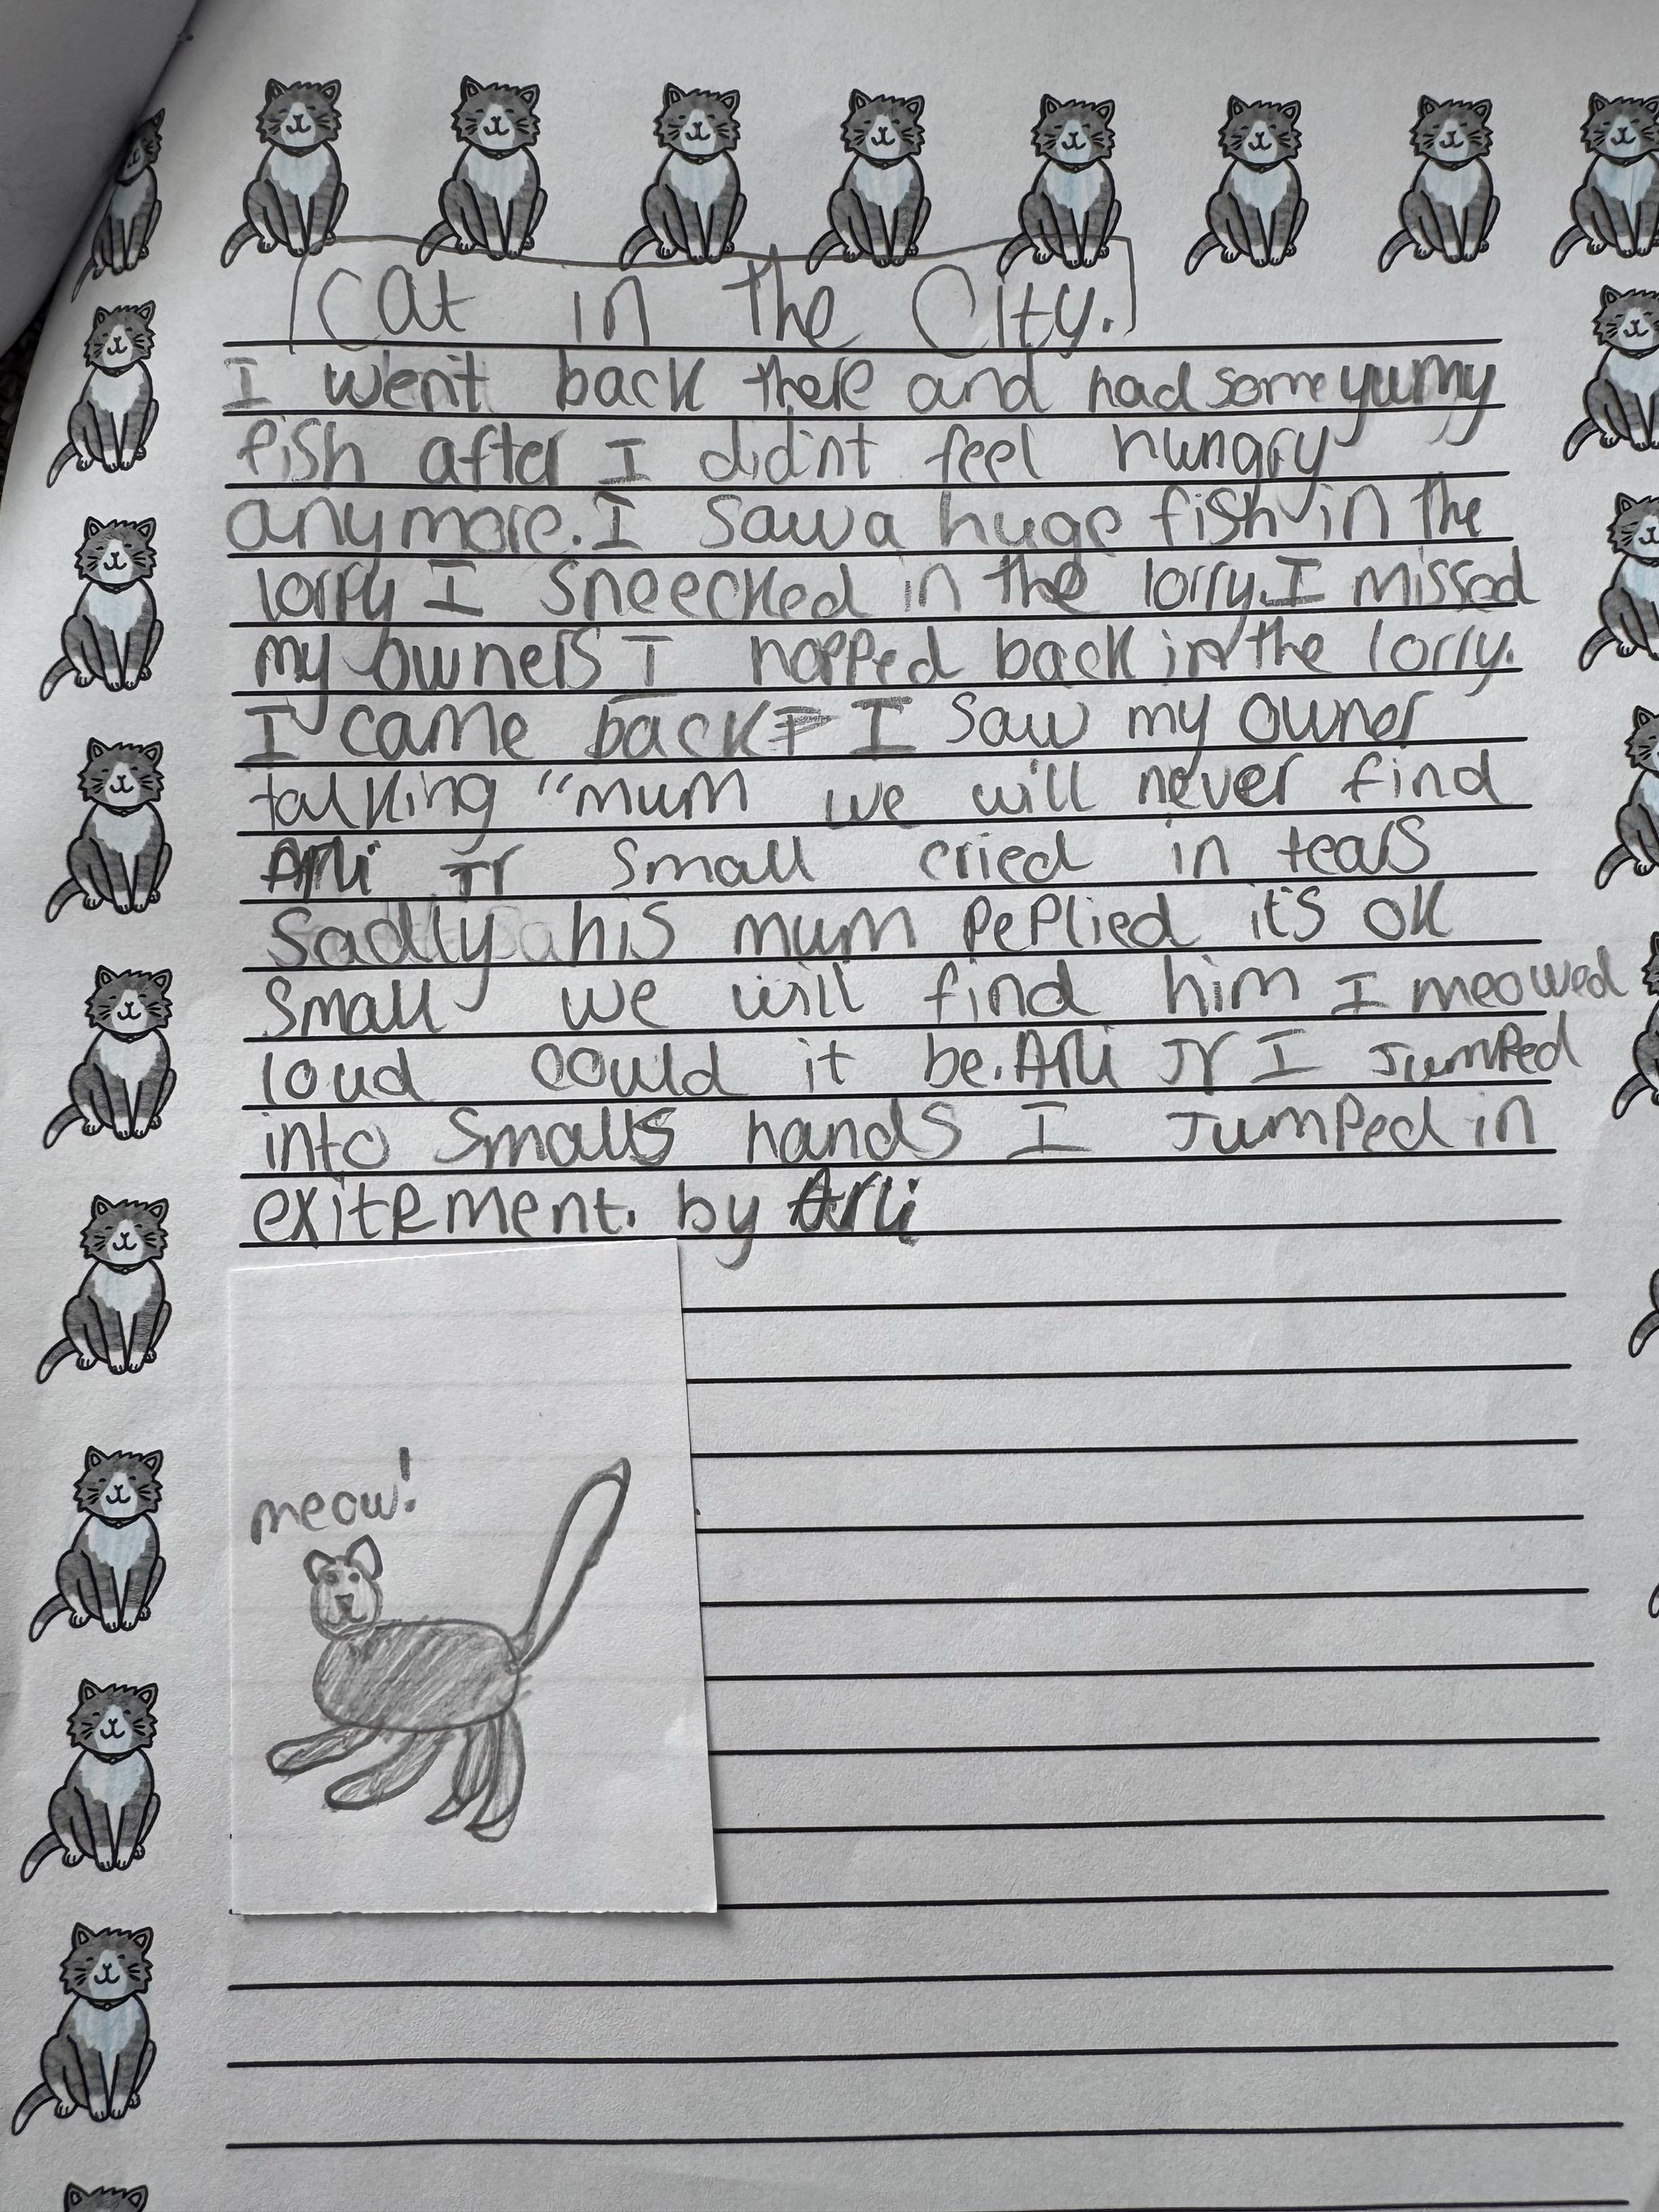 Cat in the City.
I went back there and had some yumy
fish after I didn't feel hungry
anymore. I saw a huge fish in the
lorry I sneecked in the lorry. I missed
my owners I hopped back in the lorry.
I came back I saw my owner
talking "mum we will never find
Arli Jr small cried in tears
sadly his mum peplied it's ok
small we will find him I meowed
loud could it be. Arli Jr I Jumped
into smalls hands I Jumped in
exitement. by Arli
meow!